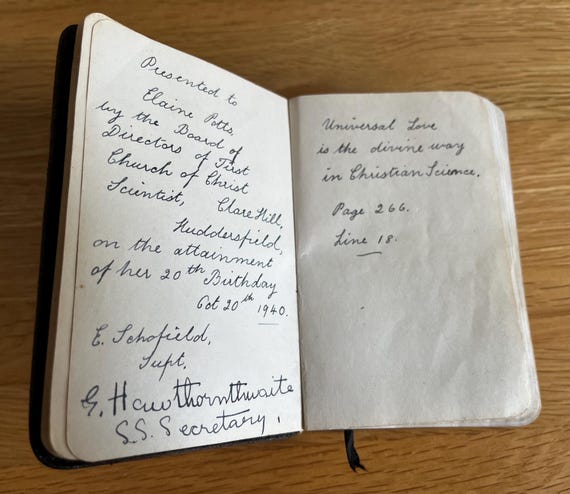 Presented to
Elaine Potts,
by the Board of
Directors of First
Church of Christ
Scientist, Clare Hill,
Huddersfield,
on the attainment
of her 20th Birthday
Oct 20th 1940.
E. Schofield,
Supt.
G. Hawthornthwaite
S.S. Secretary.
Universal Love
is the divine way
in Christian Science.
Page 266.
Line 18.